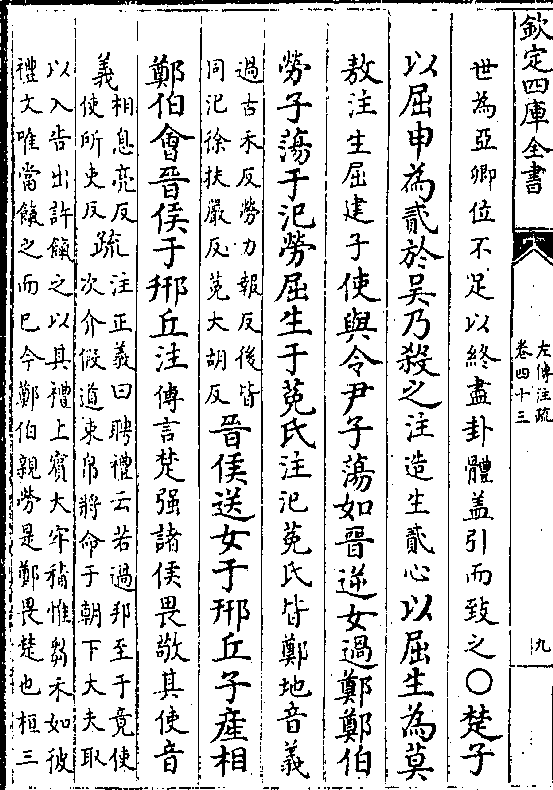 欽定四庫全書
左傳注疏
卷四十三
九
世為亞卿位不足以終盡卦體盖引而致之〇楚子
以屈申為貳於吳乃殺之注造生貳心以屈生為莫
敖注生屈建子使與令尹子蕩如晉逆女過鄭鄭伯
勞子蕩于汜勞屈生于莵氏注汜莵氏皆鄭地音義
過古禾反勞力報反後皆
同汜徐扶嚴反莵大胡反
晉侯送女于邢丘子產相
鄭伯會晉侯于邢丘注傳言楚强諸侯畏敬其使音
義
相息亮反
使所吏反
疏
注正義曰聘禮云若過邦至于竟使
次介假道束帛將命于朝下大夫取
以入告出許餼之以其禮上賓大牢積惟芻禾如彼
禮文唯當餼之而已今鄭伯親勞是鄭畏楚也桓三